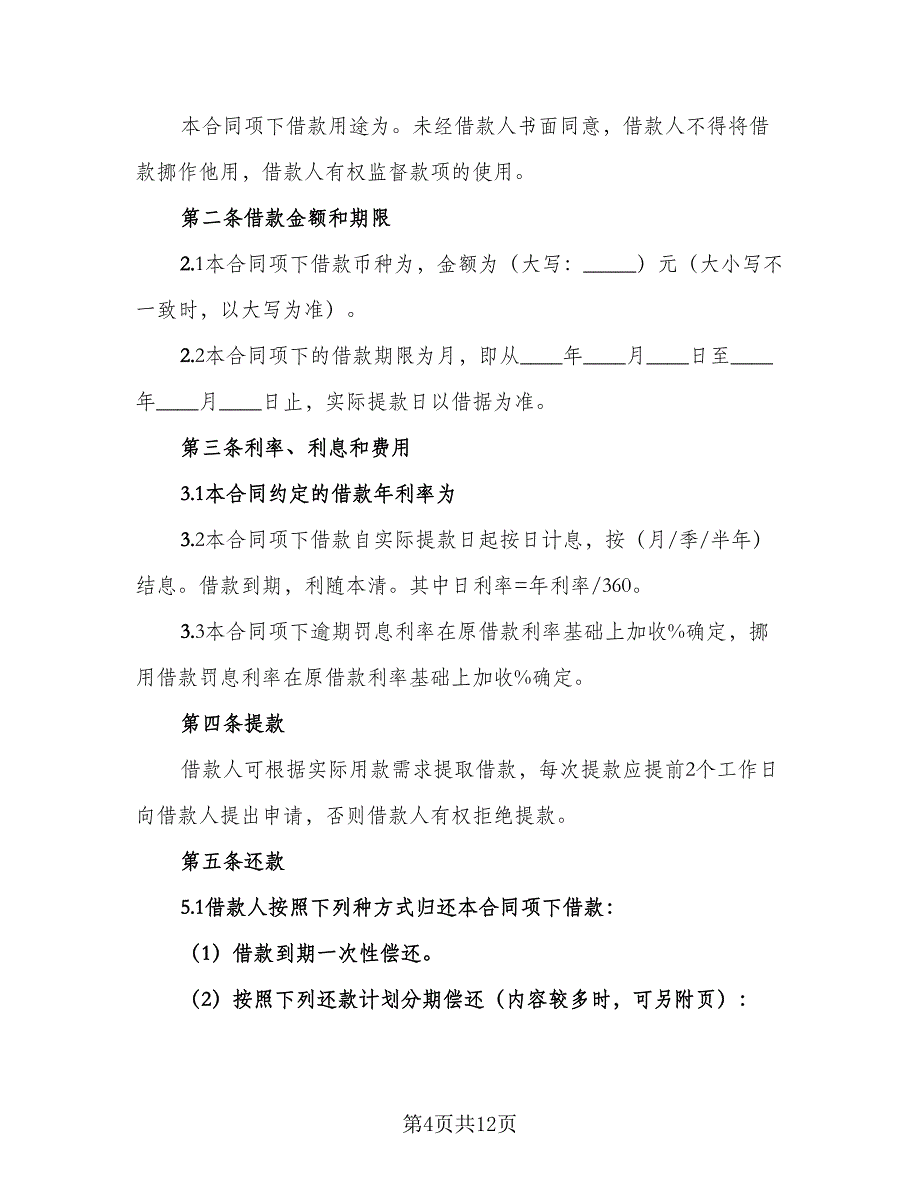 本合同项下借款用途为。未经借款人书面同意，借款人不得将借
款挪作他用，借款人有权监督款项的使用。
第二条借款金额和期限
2.1本合同项下借款币种为，金额为（大写：_____）元（大小写不
一致时，以大写为准）。
2.2本合同项下的借款期限为月，即从____年____月____日至____
年____月____日止，实际提款日以借据为准。
第三条利率、利息和费用
3.1本合同约定的借款年利率为
3.2本合同项下借款自实际提款日起按日计息，按（月/季/半年）
结息。借款到期，利随本清。其中日利率=年利率/360。
3.3本合同项下逾期罚息利率在原借款利率基础上加收%确定，挪
用借款罚息利率在原借款利率基础上加收%确定。
第四条提款
借款人可根据实际用款需求提取借款，每次提款应提前2个工作日
向借款人提出申请，否则借款人有权拒绝提款。
第五条还款
5.1借款人按照下列种方式归还本合同项下借款：
（1）借款到期一次性偿还。
（2）按照下列还款计划分期偿还（内容较多时，可另附页）：
第4页共12页